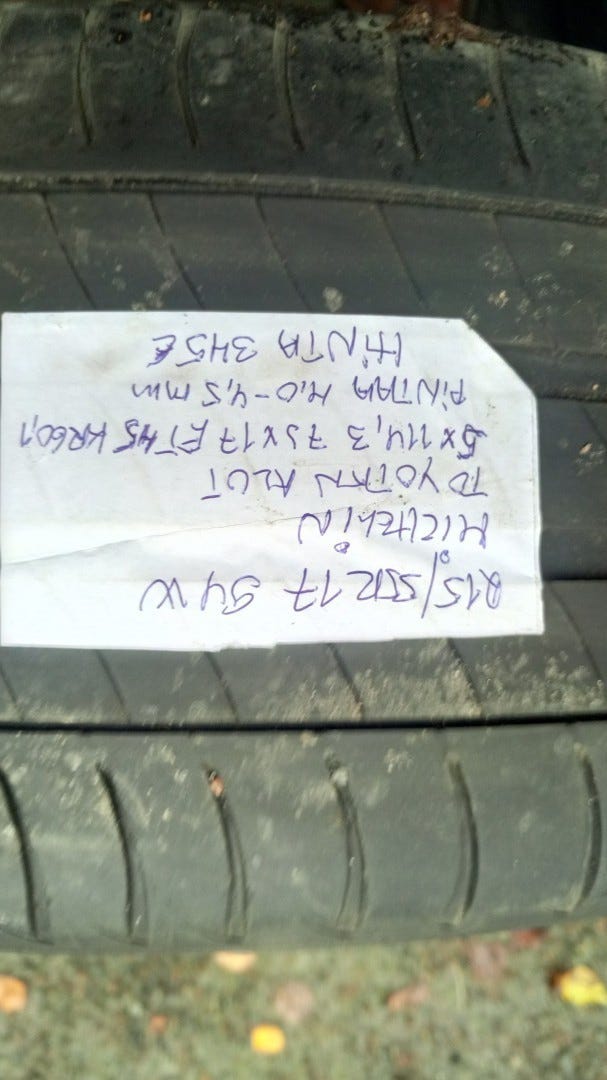 215/55R17 94W
MICHELiN
TOYOTAN ALUT
5x114,3 7Jx17 ET45 KR60,1
PiNTAA 4,0-4,5 mm
HiNTA 345€